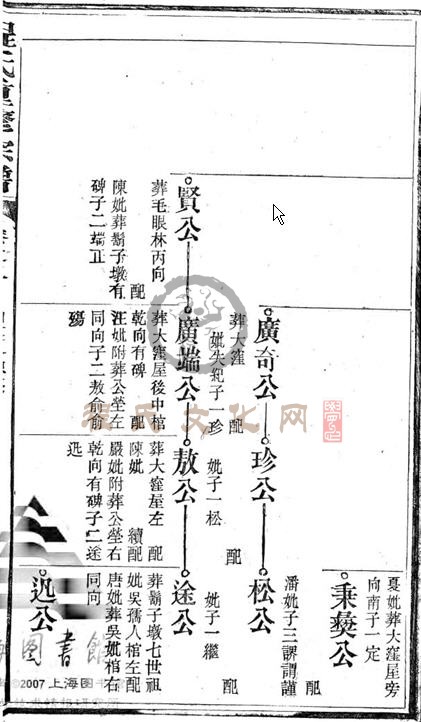 賢公
葬毛眼林丙向 配
陳妣葬鬍子墩有
碑子二端正
廣奇公
葬大窪 配
妣失紀子一珍
廣端公
葬大窪屋後中棺
乾向有碑 配
汪妣附葬公塋左
同向子二敖俞俞
殤
珍公
配
妣子一松
敖公
葬大窪屋左 配
陳妣 續配
嚴妣附葬公塋右
乾向有碑子二途
夏妣葬大窪屋旁
向南子一定
秉彜公
配
潘妣子三 謂謹
松公
配
妣子一繼
途公
葬鬍子墩七世祖
妣吳孺人棺左配
唐妣葬吳妣棺右
同向
公
氏文化网
©2007 上海图书